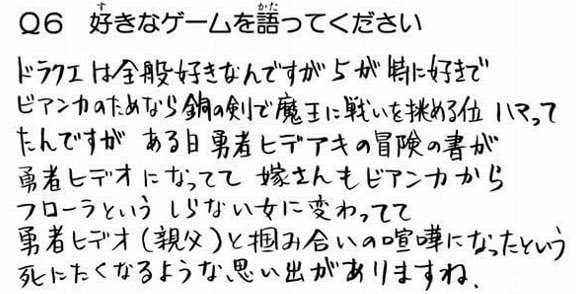 Q6 好きなゲームを語ってください
ドラクエは全般好きなんですが5が特に好きで
ビアンカのためなら銅の剣で魔王に戦いを挑める位 ハマって
たんですが ある日勇者ヒデアキの冒険の書が
勇者ヒデオになってて 嫁さんもビアンカから
フローラという しらない女に変わってて
勇者ヒデオ(親父)と掴み合いの喧嘩になったという
死にたくなるような思い出がありますね.